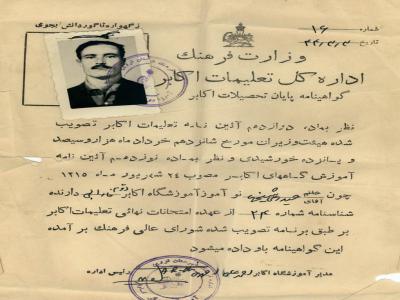 زگهواره تا گور دانش بجوی
شماره ۱۶
تاریخ
وزارت فرهنگ
اداره کل تعلیمات اکابر
گواهینامه پایان تحصیلات اکابر
نظر بماده دوازدهم آئین نامه تعلیمات اکابر تصویب
شده هیئت وزیران مورخ شانزدهم خرداد ماه هزار و سیصد
و پانزده خورشیدی و نظر بماده نوزدهم آئین نامه
آموزشگاههای اکابر مصوب ۲۴ شهریور ماه ۱۳۱۵
چون خانم
آقای نوآموز آموزشگاه اکابر دارنده
شناسنامه شماره ۲۴ از عهده امتحانات نهائی تعلیمات اکابر
بر طبق برنامه تصویب شده شورای عالی فرهنگ بر آمده
این گواهینامه باو داده میشود
مدیر آموزشگاه اکابر رئیس اداره